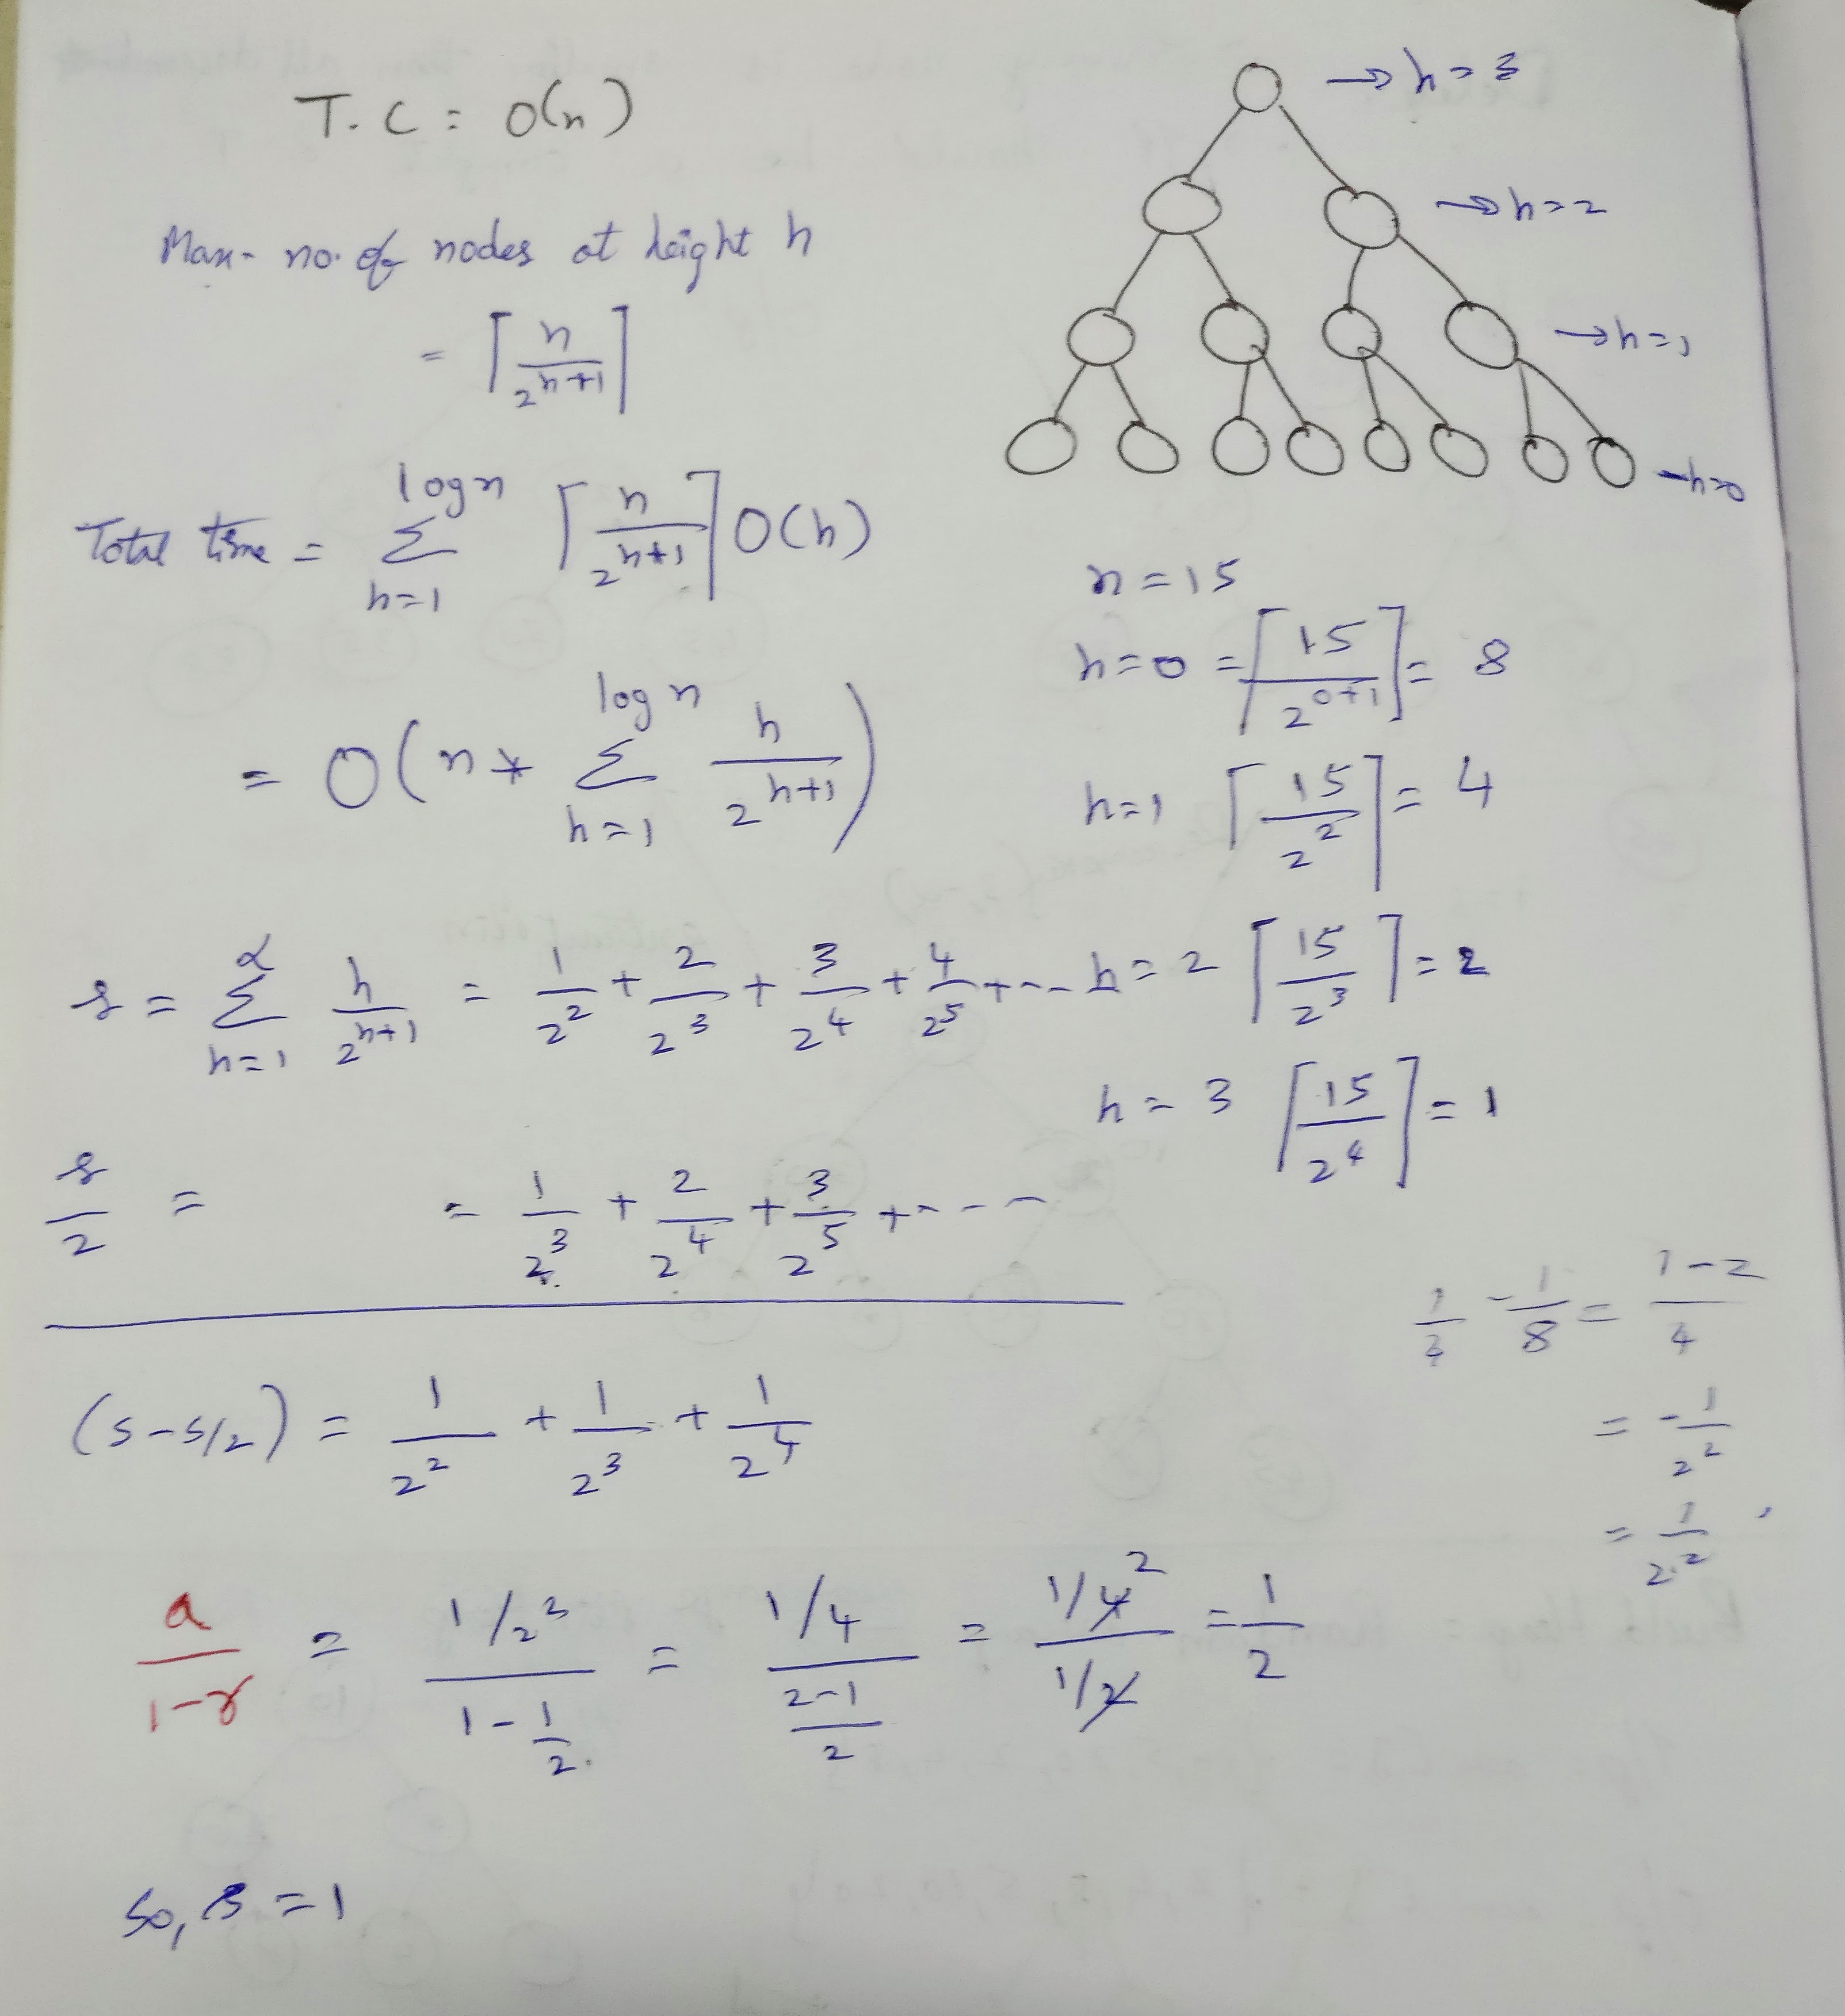 T. C = O(n)
Max- no. of nodes at height h
= ⌈n/2^(h+1)⌉
Total time = Σ_(h=1)^(log n) ⌈n/2^(h+1)⌉ O(h)
= O(n * Σ_(h=1)^(log n) h/2^(h+1))
s = Σ_(h=1)^α h/2^(h+1) = 1/2^2 + 2/2^3 + 3/2^4 + 4/2^5 + ---
s/2 = = 1/2^3 + 2/2^4 + 3/2^5 + ----
(s-s/2) = 1/2^2 + 1/2^3 + 1/2^4
a/(1-r) = (1/2^3)/(1-1/2) = (1/4)/((2-1)/2) = (1/4^2)/(1/2) = 1/2
So, s = 1
→ h=3
→ h=2
→ h=1
→ h=0
n = 15
h=0 = ⌈15/2^(0+1)⌉ = 8
h=1 ⌈15/2^2⌉ = 4
h=2 ⌈15/2^3⌉ = 2
h=3 ⌈15/2^4⌉ = 1
- 1/8 = (1-2)/4
= -1/2^2
= 1/2^2